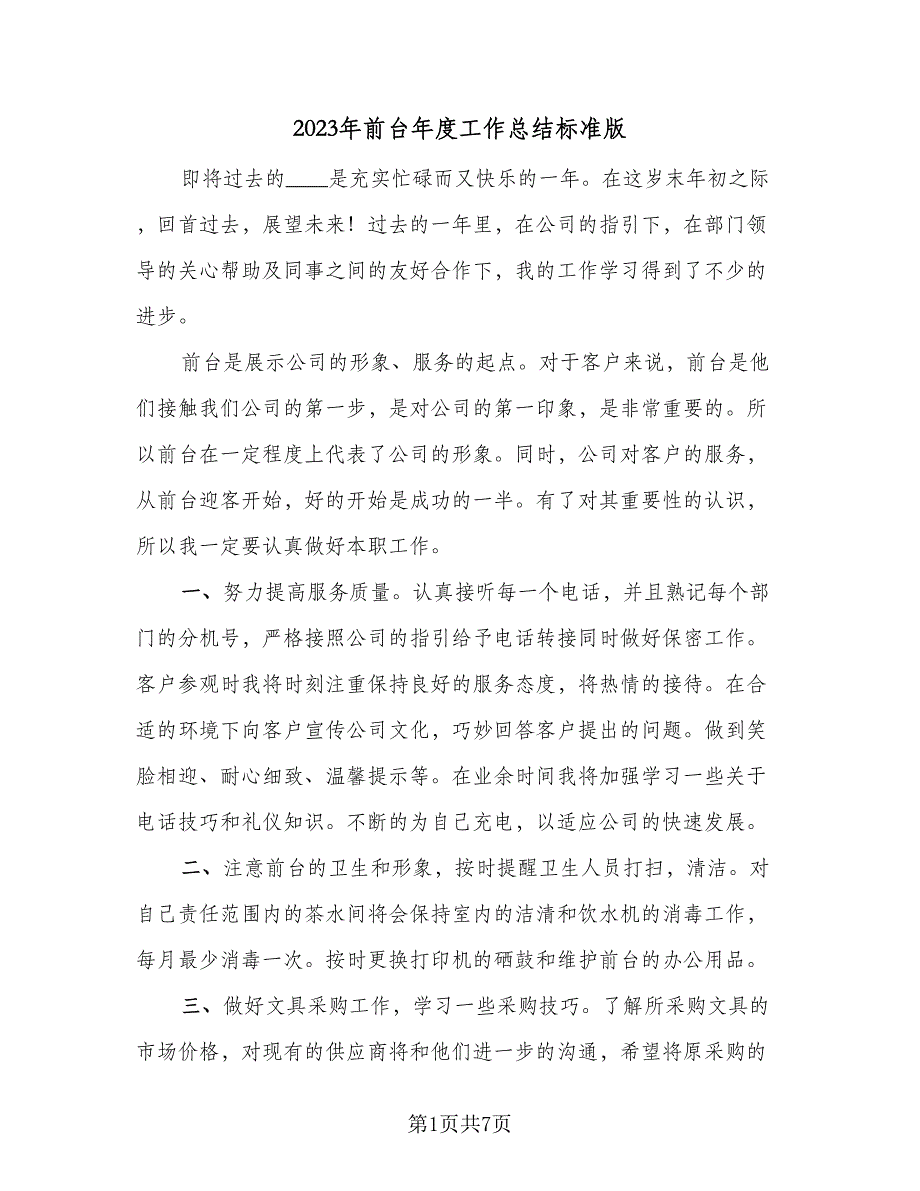 2023年前台年度工作总结标准版
即将过去的____是充实忙碌而又快乐的一年。在这岁末年初之际
，回首过去，展望未来！过去的一年里，在公司的指引下，在部门领
导的关心帮助及同事之间的友好合作下，我的工作学习得到了不少的
进步。
前台是展示公司的形象、服务的起点。对于客户来说，前台是他
们接触我们公司的第一步，是对公司的第一印象，是非常重要的。所
以前台在一定程度上代表了公司的形象。同时，公司对客户的服务，
从前台迎客开始，好的开始是成功的一半。有了对其重要性的认识，
所以我一定要认真做好本职工作。
一、努力提高服务质量。认真接听每一个电话，并且熟记每个部
门的分机号，严格按照公司的指引给予电话转接同时做好保密工作。
客户参观时我将时刻注重保持良好的服务态度，将热情的接待。在合
适的环境下向客户宣传公司文化，巧妙回答客户提出的问题。做到笑
脸相迎、耐心细致、温馨提示等。在业余时间我将加强学习一些关于
电话技巧和礼仪知识。不断的为自己充电，以适应公司的快速发展。
二、注意前台的卫生和形象，按时提醒卫生人员打扫，清洁。对
自己责任范围内的茶水间将会保持室内的洁清和饮水机的消毒工作，
每月最少消毒一次。按时更换打印机的硒鼓和维护前台的办公用品。
三、做好文具采购工作，学习一些采购技巧。了解所采购文具的
市场价格，对现有的供应商将和他们进一步的沟通，希望将原采购的
第1页共7页